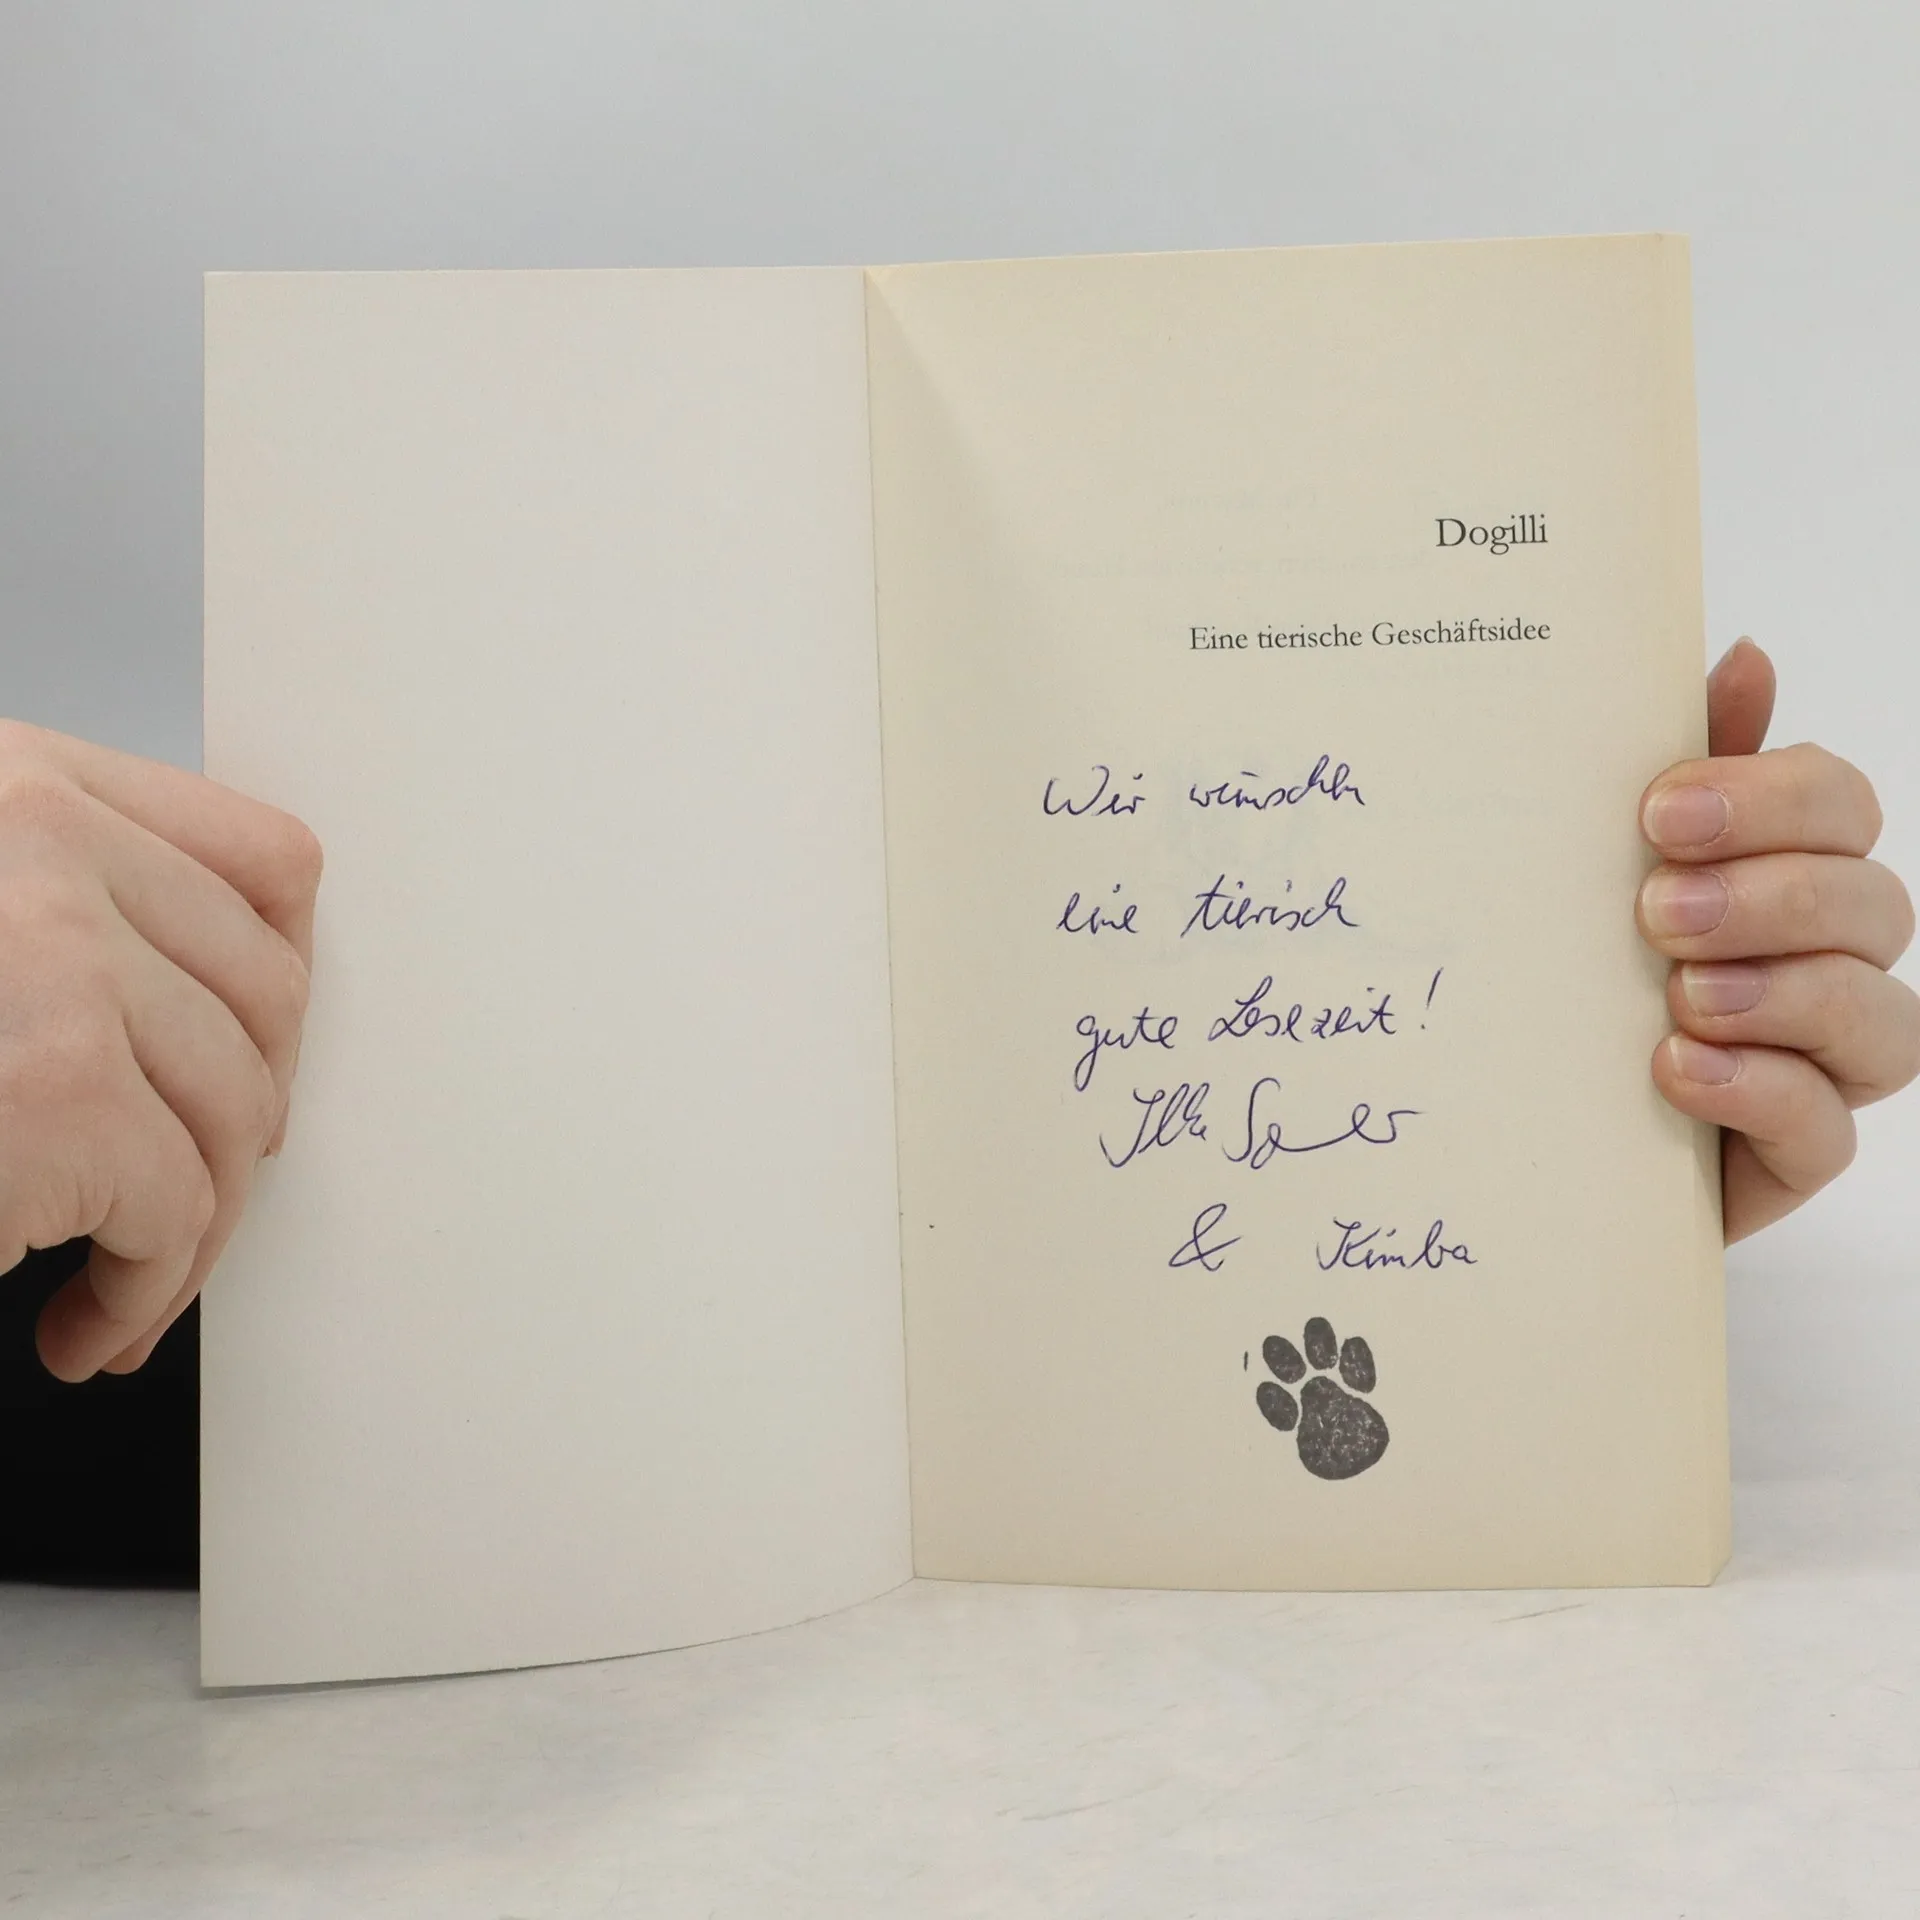 Dogilli
Eine tierische Geschäftsidee
Wir wünschen
eine tierisch
gute Lesezeit!
& Kimba